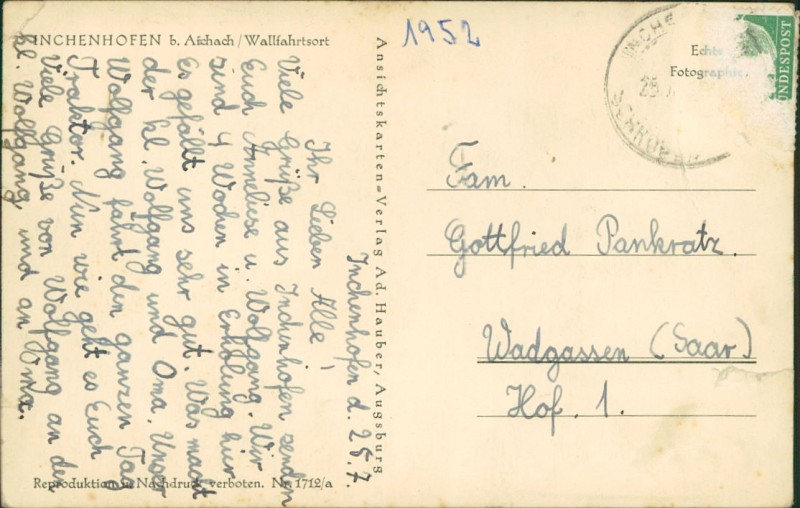 INCHENHOFEN b. Aichach / Wallfahrtsort
1952
Echte
Fotographie
BUNDESPOST
Ansichtskarten=Verlag Ad. Hauber, Augsburg
Inchenhofen d. 25.7.
Ihr Lieben Alle,
Viele Grüße aus Inchenhofen senden
Euch Anneliese u. Wolfgang. Wir
sind 4 Wochen in Erholung hir
Es gefällt uns sehr gut. Was macht
der kl. Wolfgang und Oma. Unser
Wolfgang fährt den ganzen Tag
Traktor. Nun wie geht es Euch
Viele Grüße von Wolfgang an den
kl. Wolfgang und an Oma.
Fam.
Gottfried Pankratz.
Wadgassen (Saar)
Hof. 1.
Reproduktion u. Nachdruck verboten. Nr. 1712/a